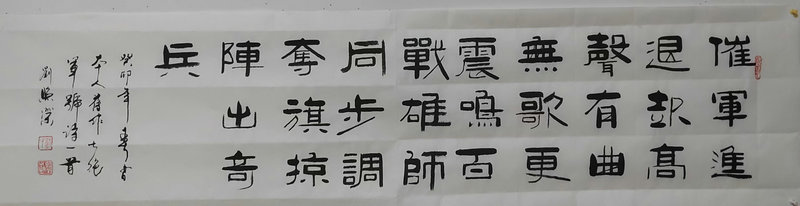 催軍進
退起高
聲有曲
無歌更
震鳴百
戰雄師
同步調
奪旗掠
陣出奇
兵
癸卯年春書
本人舊作七絕
軍號詩一首
劉